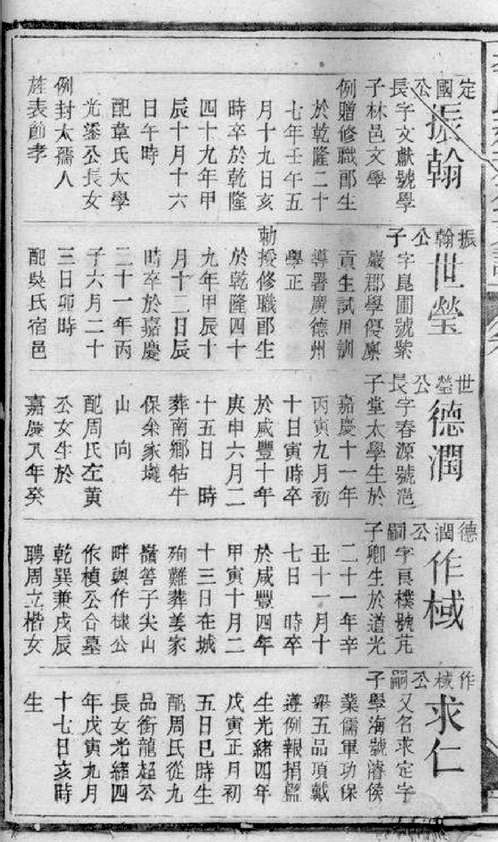 定國公長子
振翰
字文獻號學
林邑文學
例贈修職郎生
於乾隆二十
七年壬午五
月十九日亥
時卒於乾隆
四十九年甲
辰十月十六
日午時
配韋氏太學
光鎏公長女
例封太孺人
旌表節孝
振翰公子
世瑩
字崑圃號紫
巖郡學優廩
貢生試用訓
導署廣德州
學正
勅授修職郎生
於乾隆四十
九年甲辰十
月十二日辰
時卒於嘉慶
二十一年丙
子六月二十
三日卯時
配吳氏宿邑
世瑩公長子
德潤
字春源號浥
堂太學生於
嘉慶十一年
丙寅九月初
十日寅時卒
於咸豐十年
庚申六月二
十五日 時
葬南鄉牯牛
保牟家壋
山 向
配周氏左黃
公女生於
嘉慶八年癸
德潤公嗣子
作棫
字頁樸號芃
卿生於道光
二十一年辛
丑十一月十
七日 時卒
於咸豐四年
甲寅十月二
十三日在城
殉難葬姜家
嶺笤子尖山
畔與作棣公
作楨公合墓
乾巽兼戌辰
聘周立楷女
作棫公嗣子
求仁
又名求定字
學海號濬侯
業儒軍功保
舉五品頂戴
遵例報捐監
生光緒四年
戊寅正月初
五日巳時生
配周氏從九
品銜龍超公
長女光緒四
年戊寅九月
十七日亥時
生